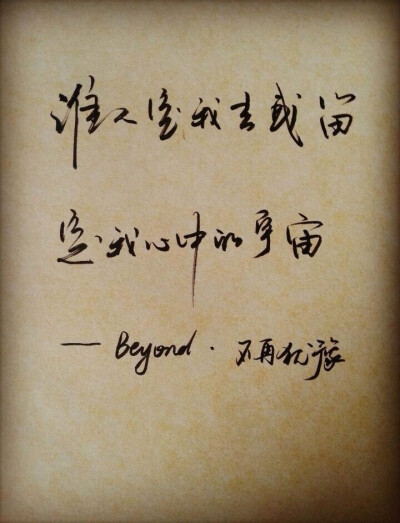 谁人定我去或留
定我心中的宇宙
— Beyond · 不再犹豫